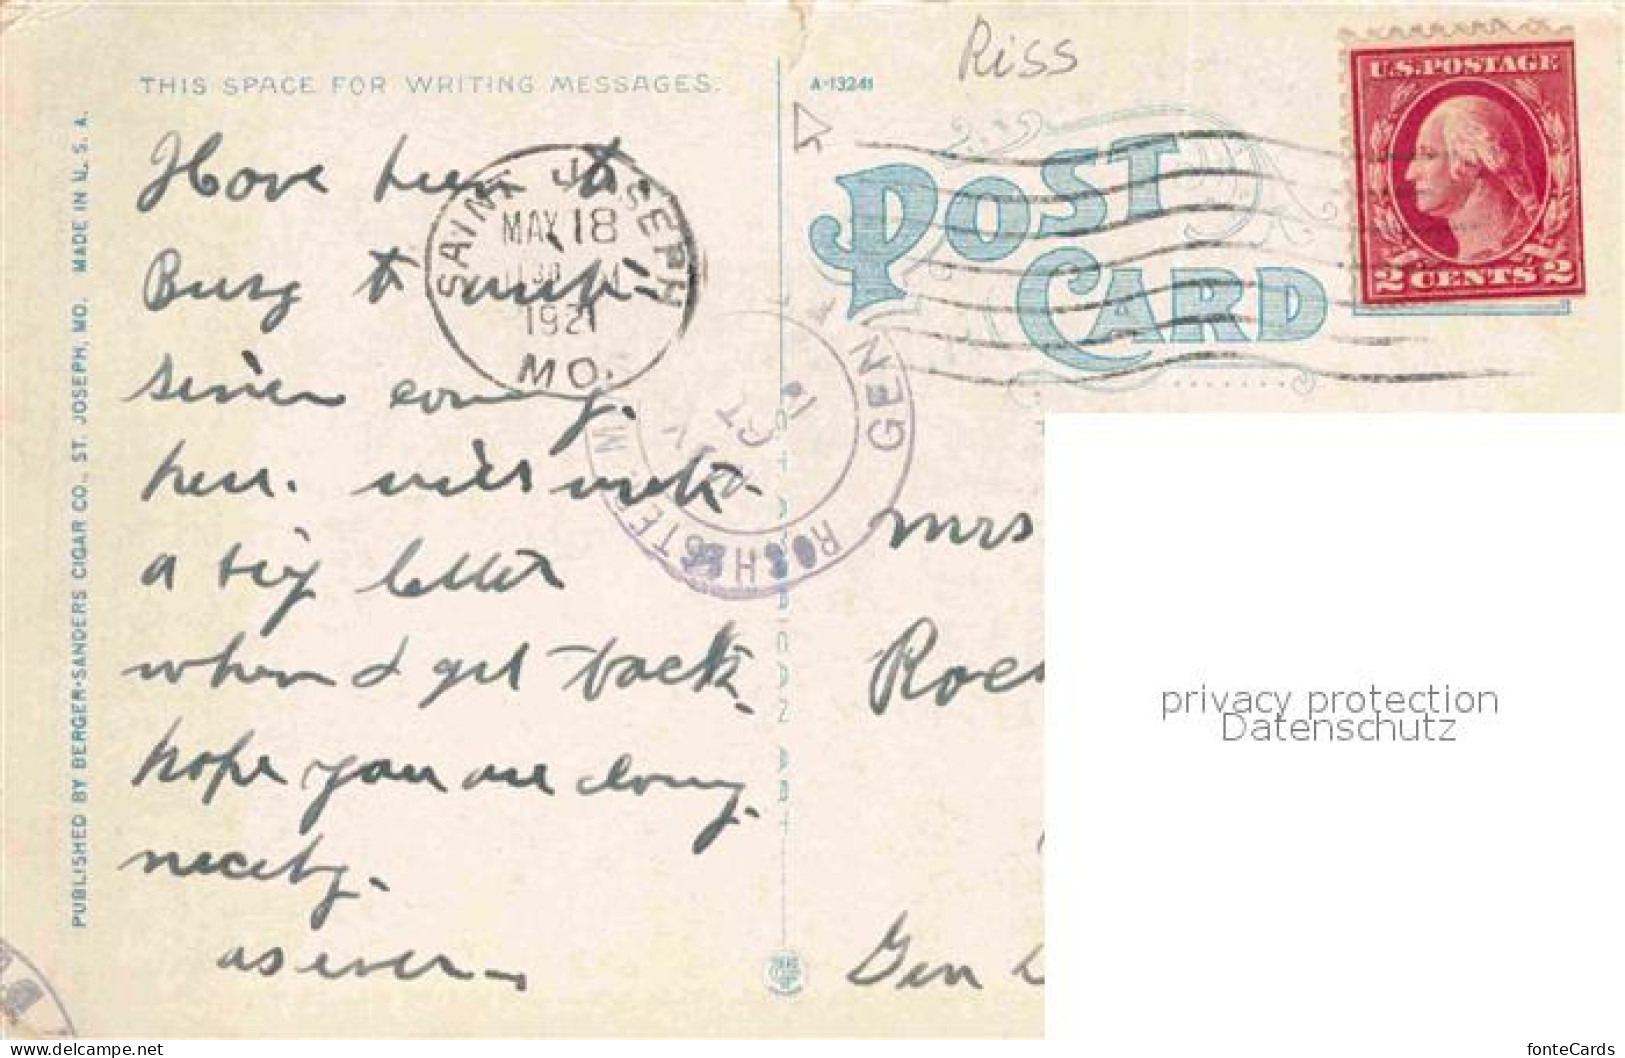 Riss
THIS SPACE FOR WRITING MESSAGES.
A-13241
U.S. POSTAGE
2 CENTS 2
POST
CARD
SAINT JOSEPH
MAY 18
1921
MO.
Have been to
Busy to write
sinin coming
here. will write
a big letter
when I get back
hope you are comg
nicely.
as ever
GEN
Mrs
Roc
Gen D
privacy protection
Datenschutz
PUBLISHED BY BERGER-SANDERS CIGAR CO., ST. JOSEPH, MO. MADE IN U. S. A.
fonteCards